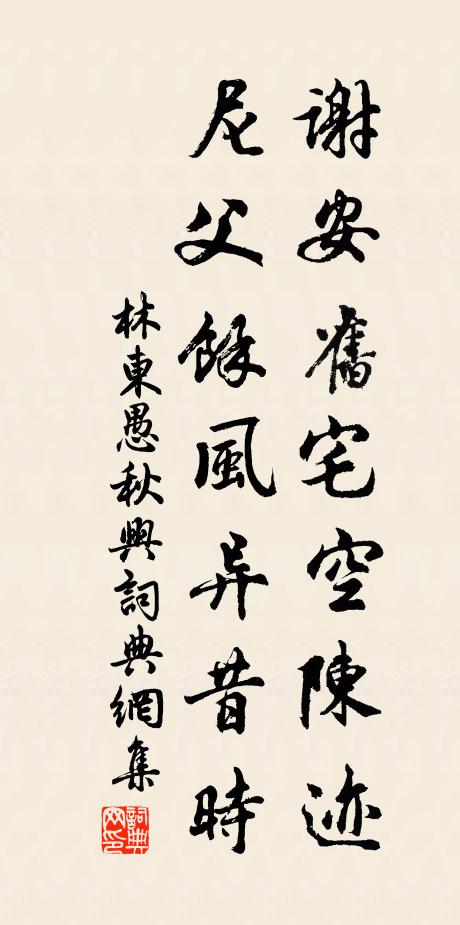 謝安舊宅空陳迹
尼父餘風异昔時
林東愚秋興詞典網集
詞典
网印